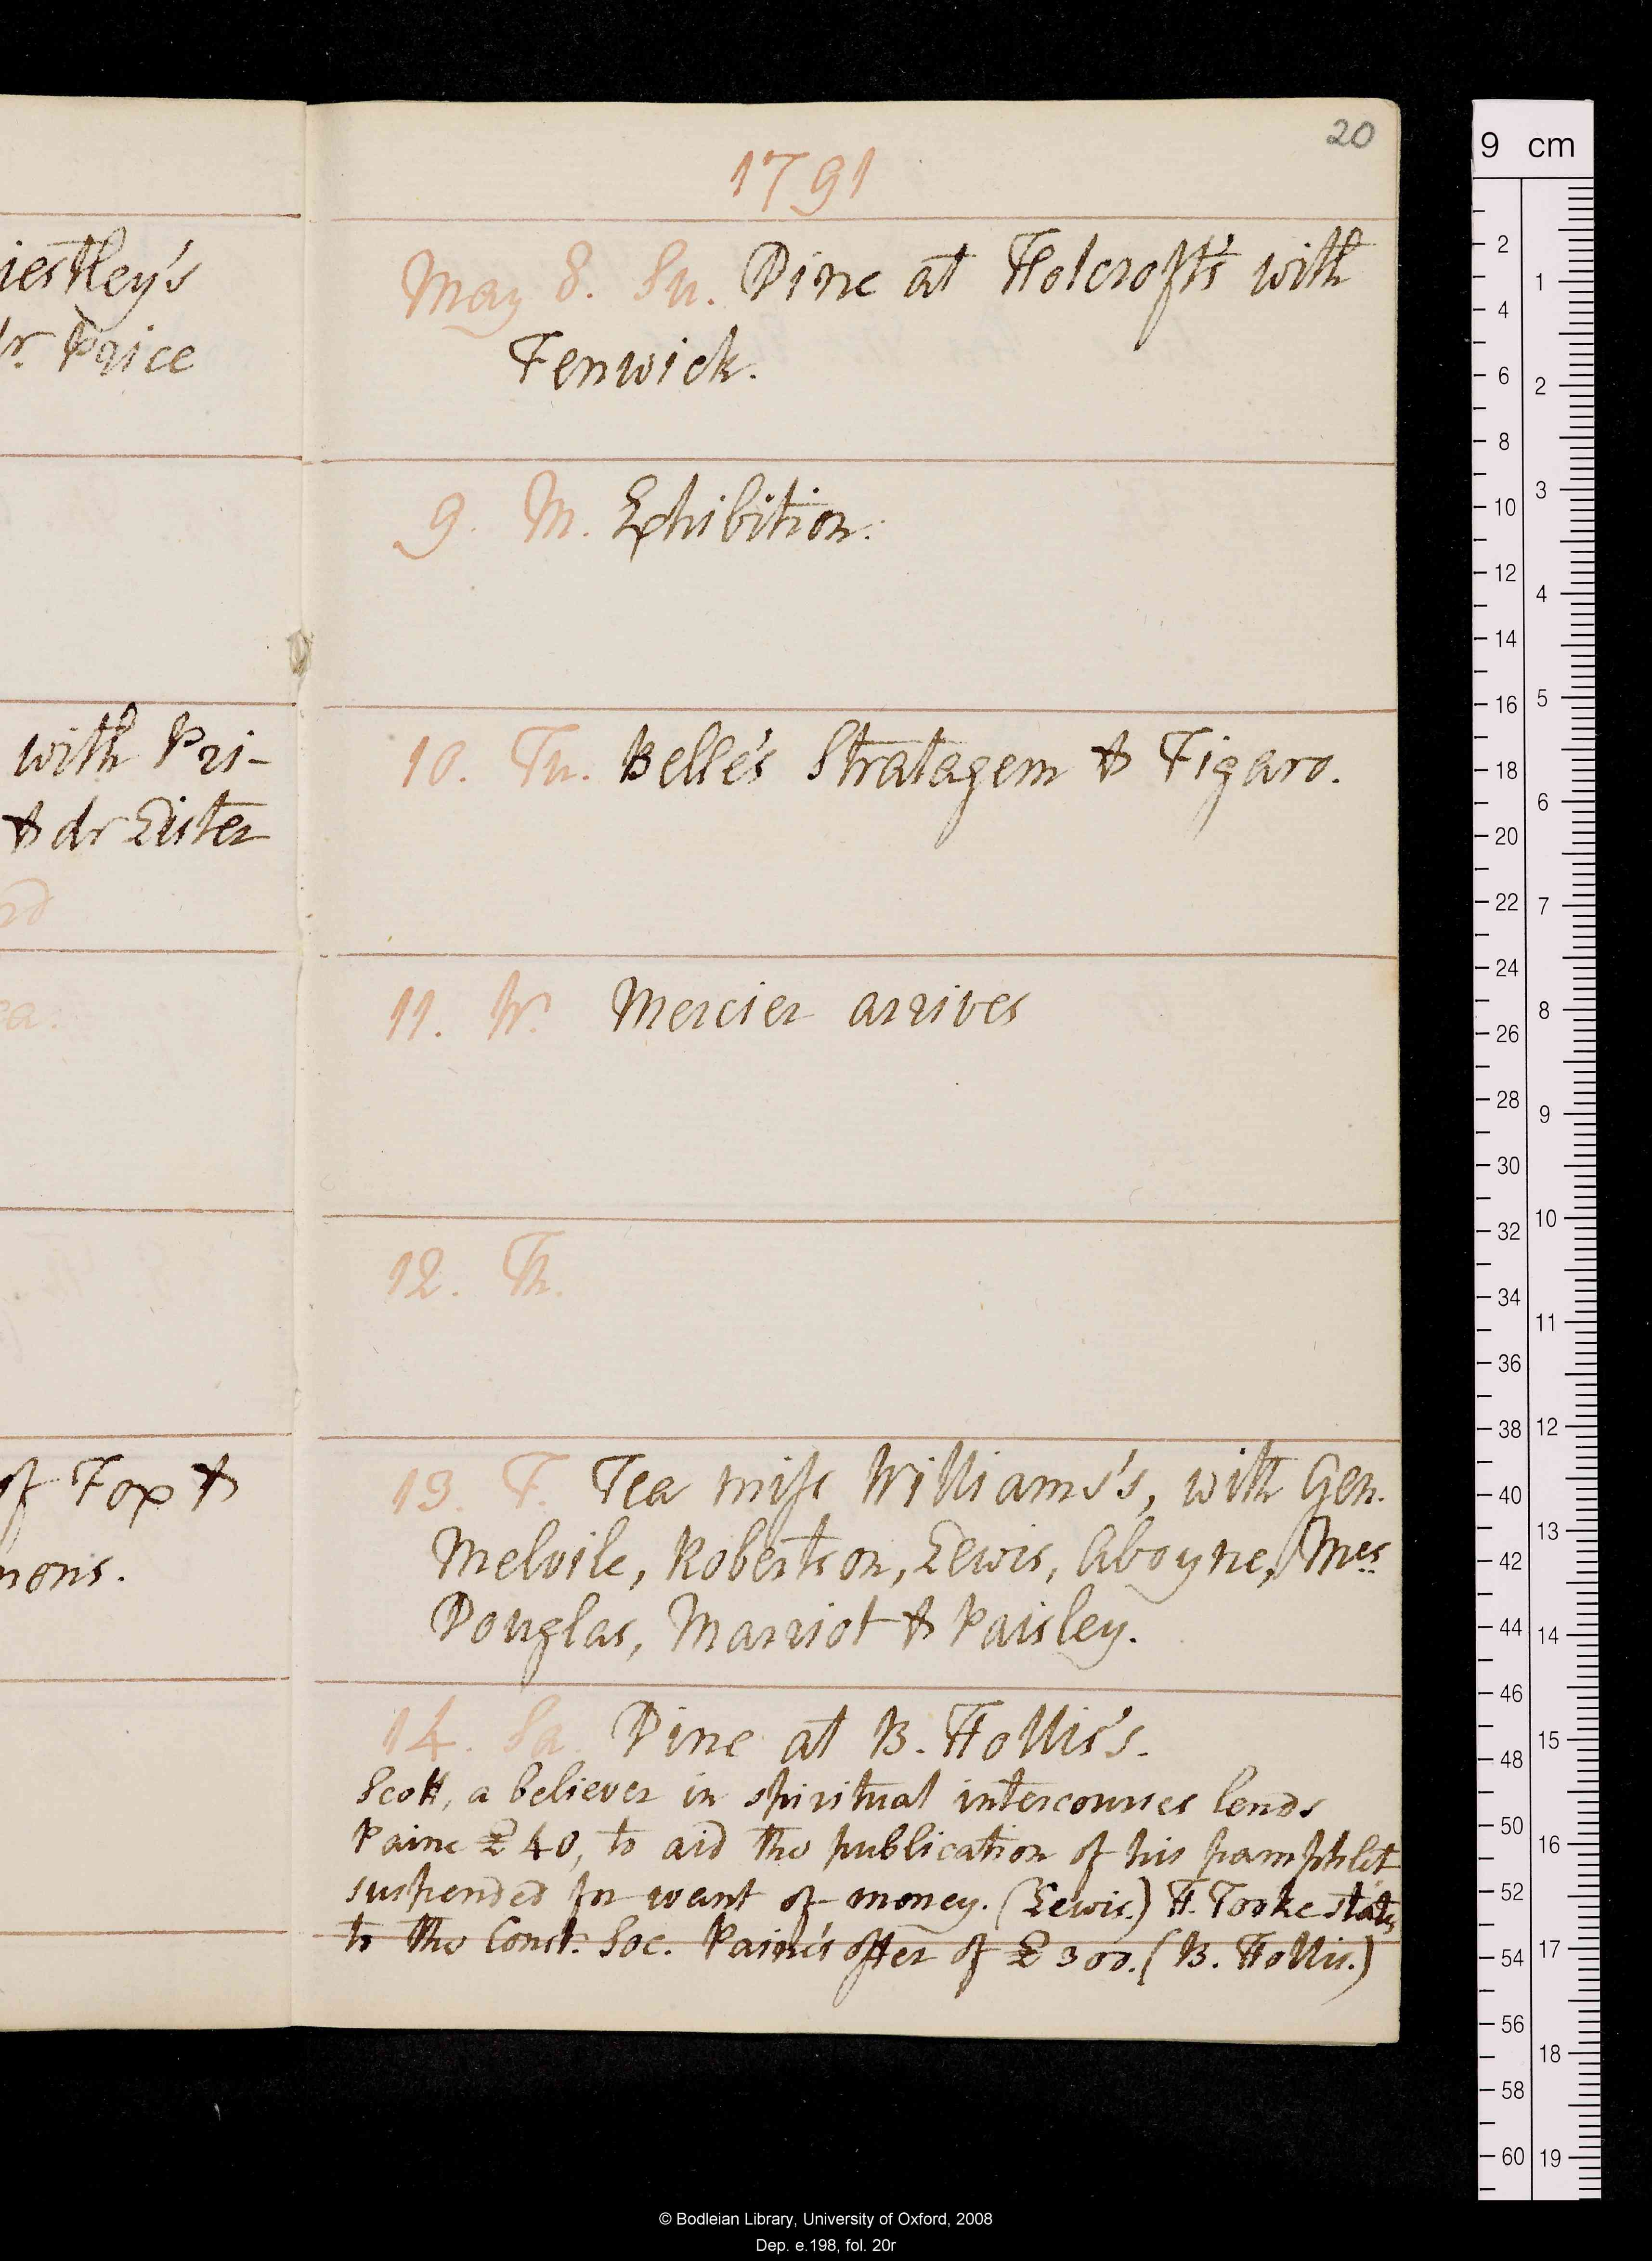 20
1791
iestley's
r. Price
with Pri-
& dr Lister
rd
ea.
of Fox &
mons.
May 8. Su. Dine at Holcroft's with
Fenwick.
9. M. Exhibition.
10. Tu. Belle's Stratagem & Figaro.
11. W. Mercier arrives
12. Th.
13. F. Tea miss Williams's, with Gen.
Melvile, Robertson, Lewis, Aboyne, Mes
Douglas, Marriot & Paisley.
14. Sa. Dine at B. Hollis's.
Scott, a believer in spiritual intercourses lends
Paine £40, to aid the publication of his pamphlet
suspended for want of money. (Lewis.) H. Tooke states
to the Const. Soc. Paine's offer of £300. (B. Hollis.)
9 cm
2
4
6
8
10
12
14
16
18
20
22
24
26
28
30
32
34
36
38
40
42
44
46
48
50
52
54
56
58
60
1
2
3
4
5
6
7
8
9
10
11
12
13
14
15
16
17
18
19
© Bodleian Library, University of Oxford, 2008
Dep. e.198, fol. 20r